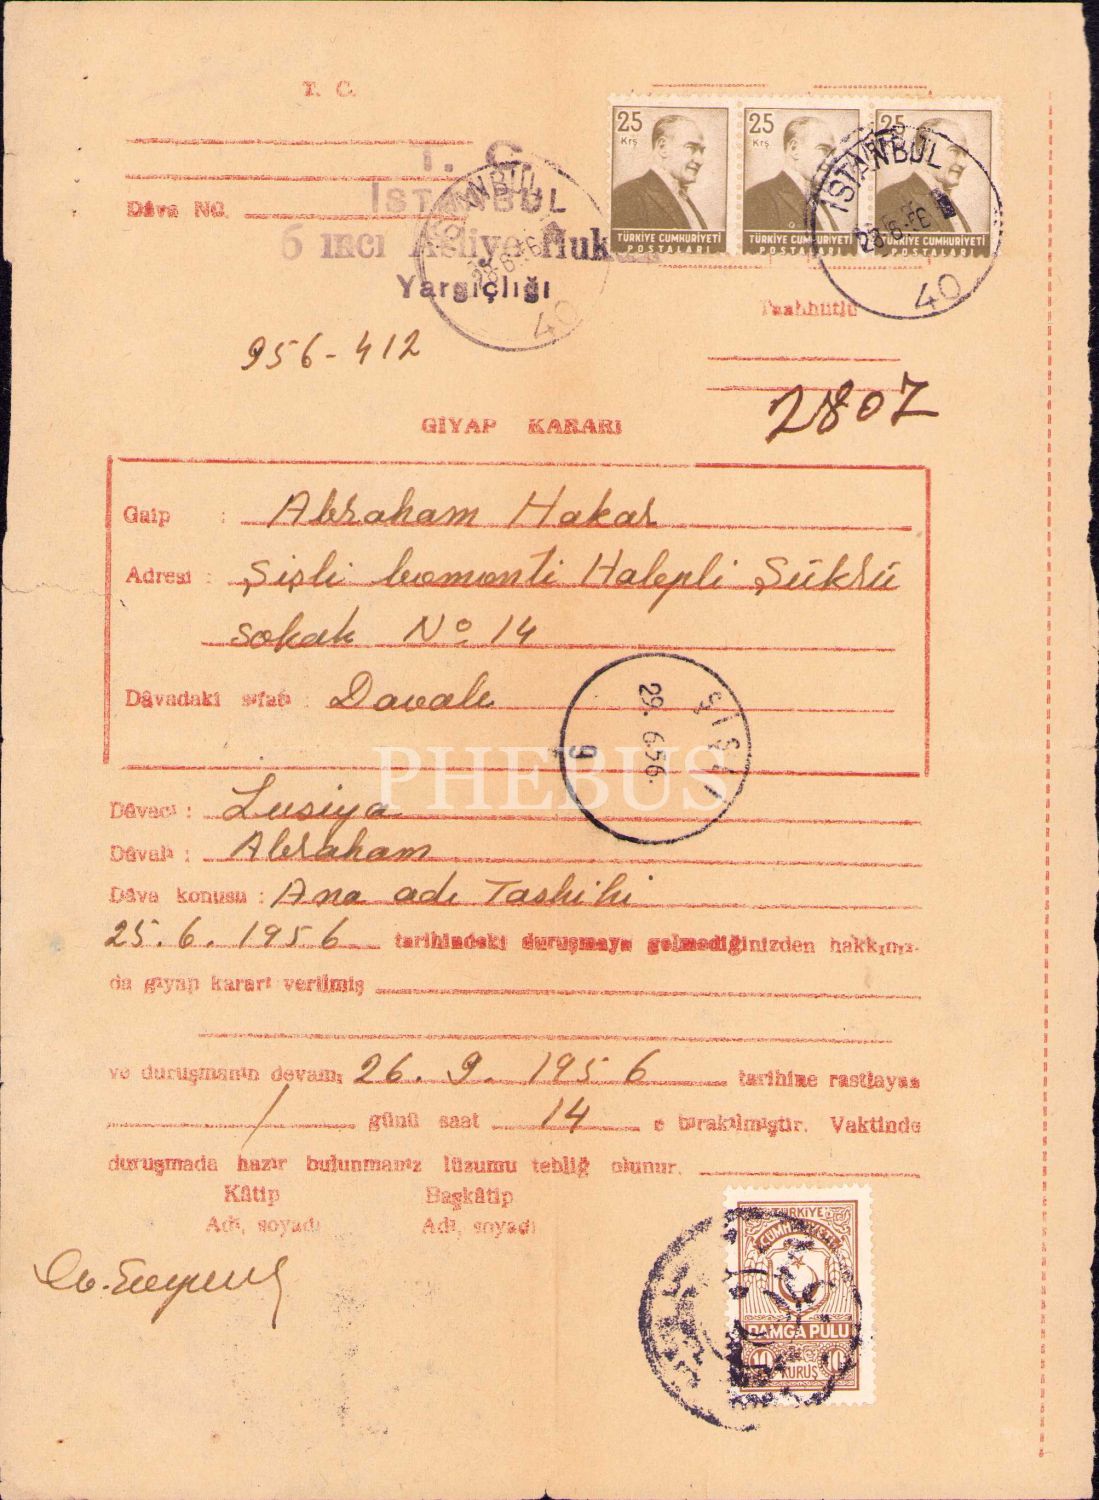 T. C.
T. C.
İSTANBUL
6 ıncı Asliye Hukuk
Yargıçlığı
Dâva NO.
25 Krş 25 Krş 25
TÜRKİYE CUMHURİYETİ POSTALARI
TÜRKİYE CUMHURİYETİ POSTALARI
TÜRKİYE CUMHURİYETİ POSTALARI
İSTANBUL
28.6.56
40
İSTANBUL
28.6.56
40
Taahhütlü
956-412
2807
GIYAP KARARI
Gaip : Abraham Hakar
Adresi : Şişli bomonti Halepli Şükrü
sokak No 14
Dâvadaki sıfatı : Davalı
ŞİŞLİ
29.6.56.
9
PHEBUS
Dâvacı : Lusiya
Dâvalı : Abraham
Dâva konusu : Ana adı Tashihi
25.6.1956 tarihindeki duruşmaya gelmediğinizden hakkınız-
da gıyap kararı verilmiş
ve duruşmanın devamı 26.9.1956 tarihine rastlayan
/ günü saat 14 e bırakılmıştır. Vaktinde
duruşmada hazır bulunmanız lüzumu tebliğ olunur.
Kâtip Başkâtip
Adı, soyadı Adı, soyadı
TÜRKİYE
CUMHURİYETİ
DAMGA PULU
10 10
KURUŞ